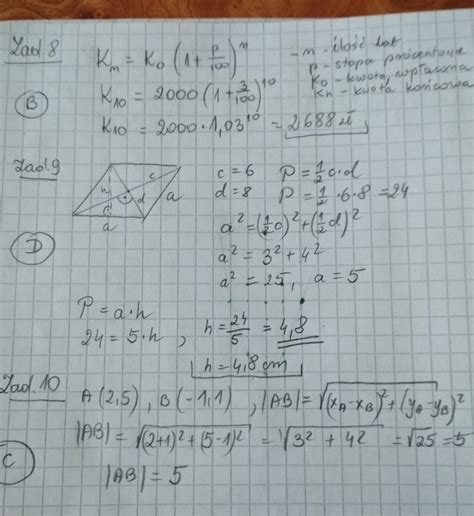 Zad. 8
Kn = K0 (1 + p/100)^n
- n - ilość lat
p - stopa procentowa
K0 - kwota wpłacona
Kn - kwota końcowa
B
K10 = 2000 (1 + 3/100)^10
K10 = 2000 · 1,03^10 = 2688 zł
Zad. 9
c = 6 P = 1/2 c·d
d = 8 P = 1/2 · 6 · 8 = 24
h c d a
d
a
a² = (1/2 c)² + (1/2 d)²
a² = 3² + 4²
D
a² = 25, a = 5
P = a · h
24 = 5 · h , h = 24/5 = 4,8
h = 4,8 cm
Zad. 10
A (2,5) , B (-1,1) , |AB| = √(xA - xB)² + (yA - yB)²
|AB| = √(2+1)² + (5-1)² = √3² + 4² = √25 = 5
C
|AB| = 5